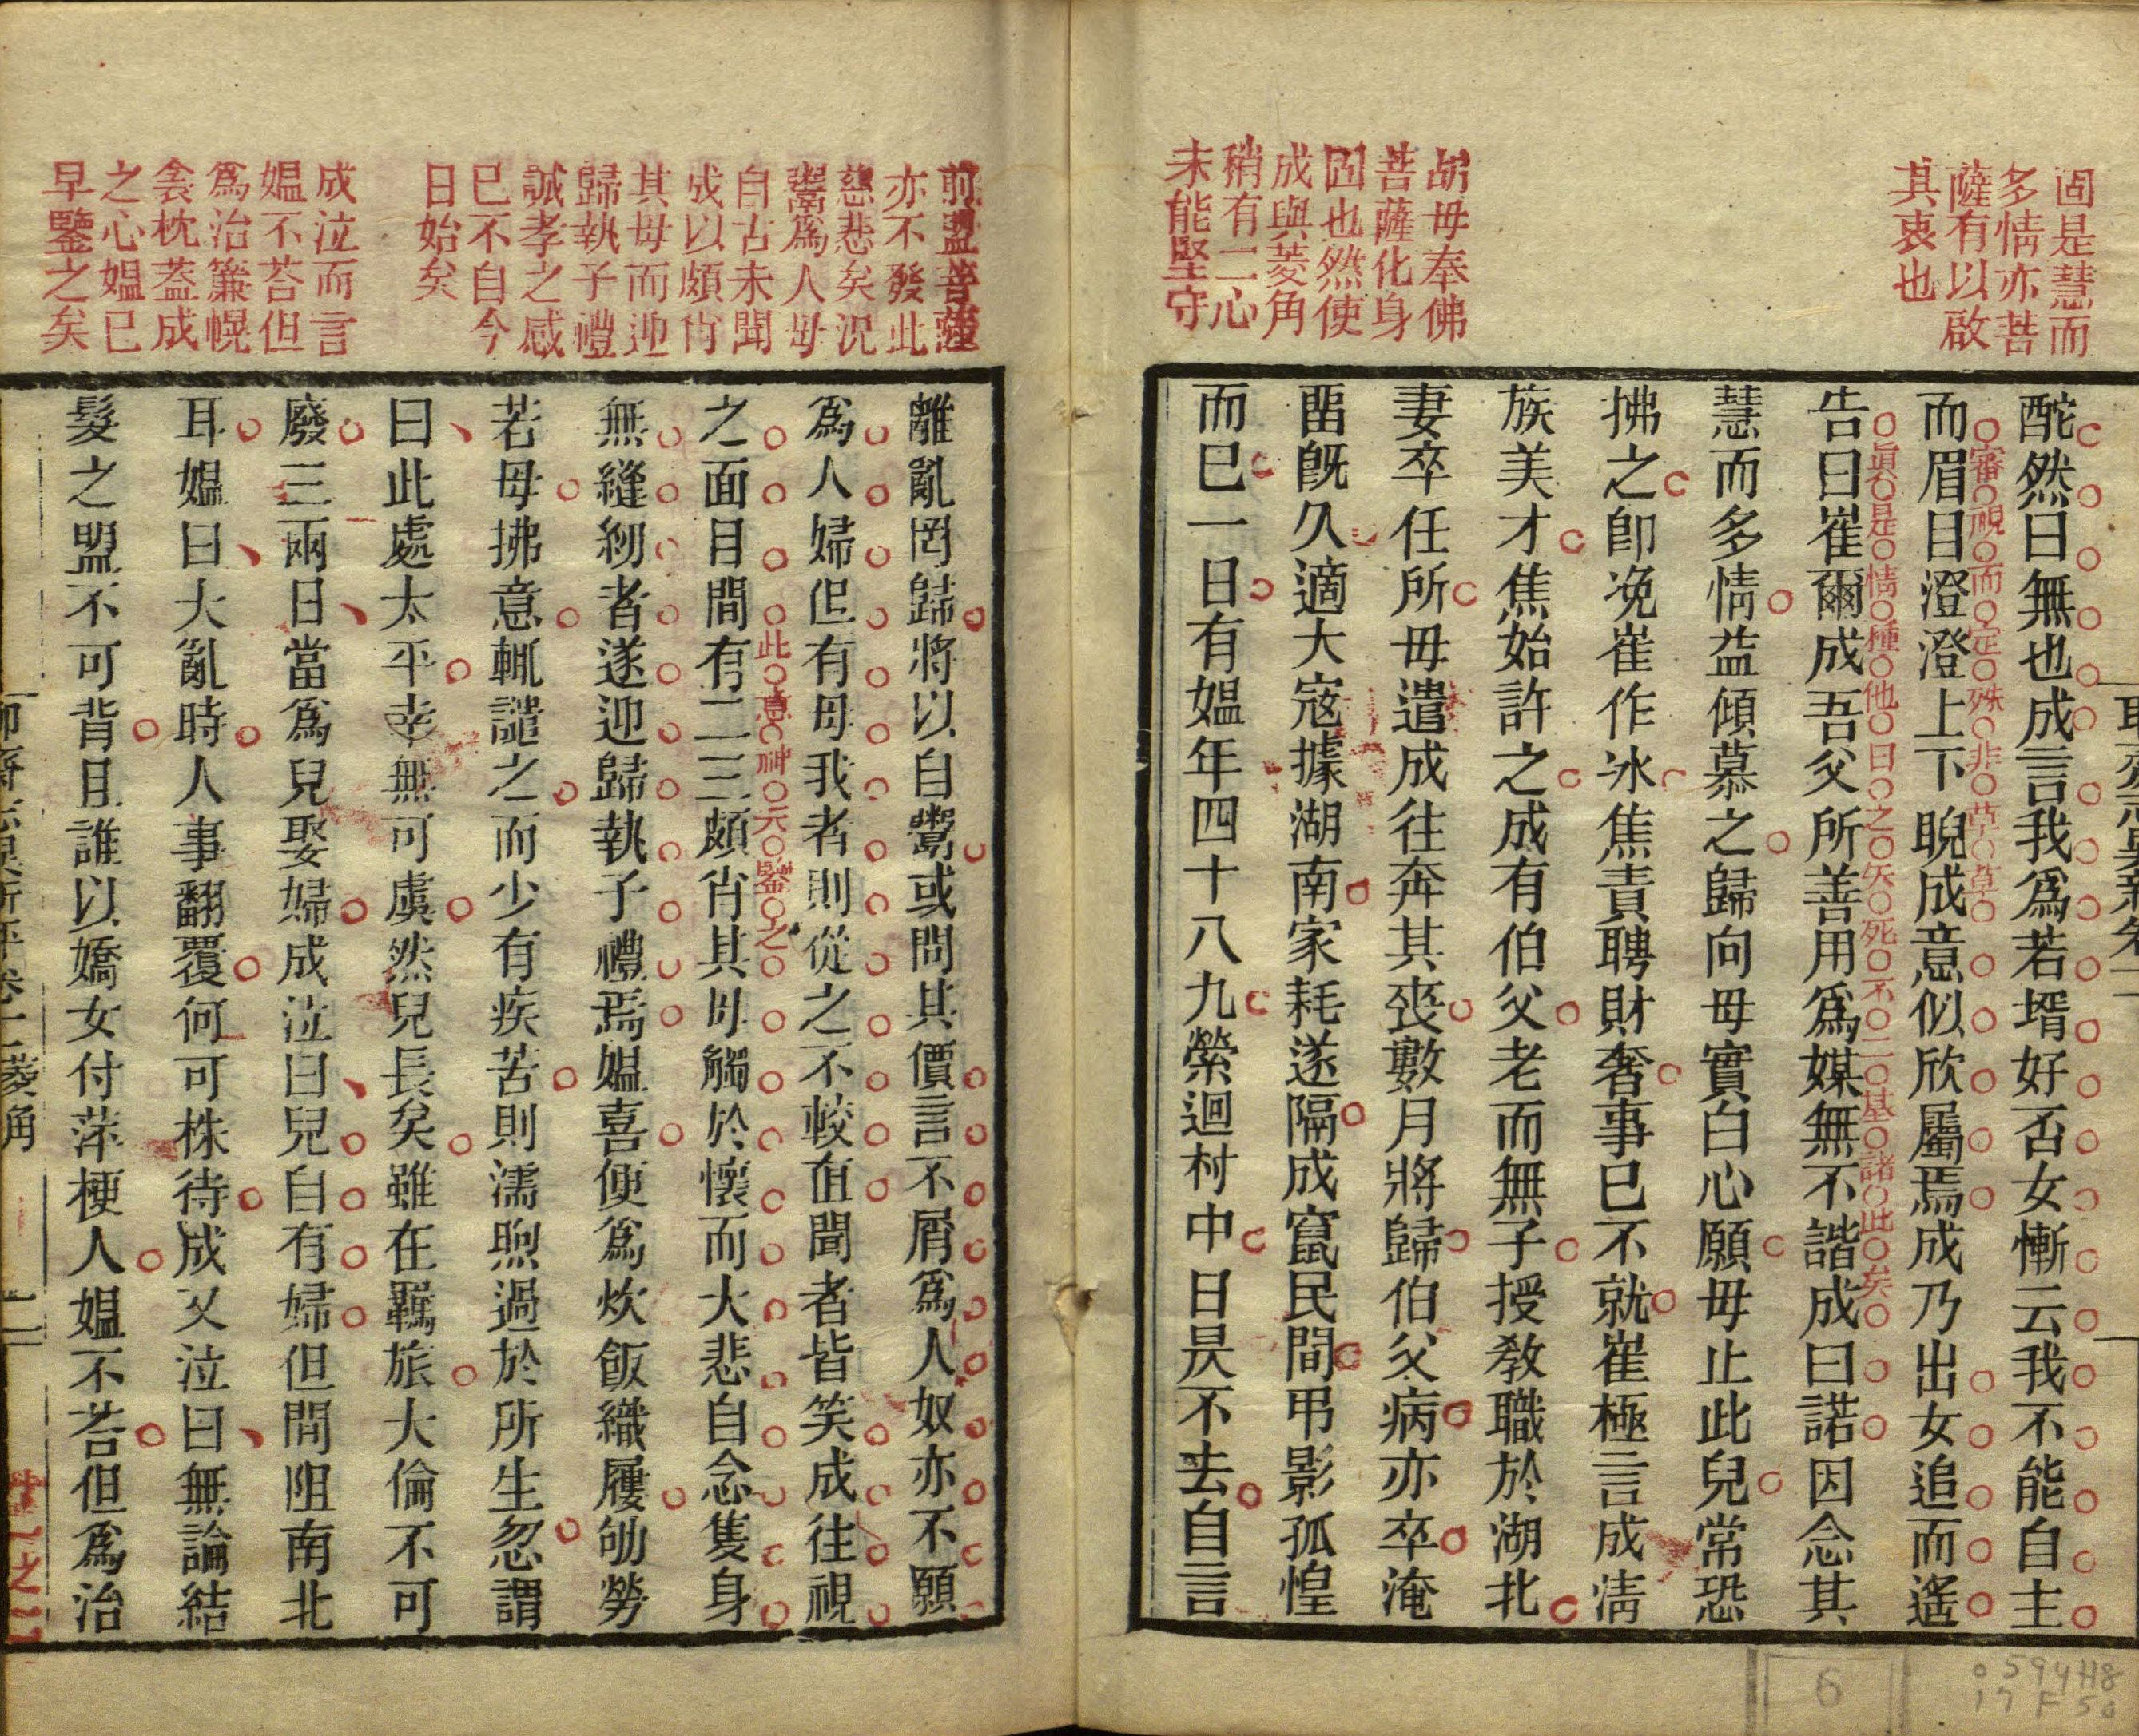 固是慧而
多情亦菩
薩有以啟
其衷也
胡母奉佛
菩薩化身
固也然使
成與菱角
稍有二心
未能堅守
酡然曰無也成言我爲若壻好否女慚云我不能自主
而眉目澄澄上下睨成意似欣屬焉成乃出女追而遙
審視而定殊非草草
告曰崔爾成吾父所善用爲媒無不諧成曰諾因念其
眞是情種他日之矢死不二基諸此矣
慧而多情益傾慕之歸向母實白心願母止此兒常恐
拂之卽浼崔作冰焦責聘財奢事已不就崔極言成淸
族美才焦始許之成有伯父老而無子授敎職於湖北
妻卒任所母遣成往奔其喪數月將歸伯父病亦卒淹
畱旣久適大寇據湖南家耗遂隔成竄民間弔影孤惶
而已一日有媼年四十八九縈迴村中日昃不去自言
前盟菩薩
亦不發此
慈悲矣況
鬻爲人母
自古未聞
成以頗肖
其母而迎
歸執子禮
誠孝之感
已不自今
日始矣
成泣而言
媼不荅但
爲治簾幌
衾枕蓋成
之心媼已
早鑒之矣
離亂罔歸將以自鬻或問其價言不屑爲人奴亦不願
爲人婦但有母我者則從之不較直聞者皆笑成往視
之面目間有二三頗肖其母觸於懷而大悲自念隻身
此意神元鑒之
無縫紉者遂迎歸執子禮焉媼喜便爲炊飯織屨劬勞
若母拂意輒譴之而少有疾苦則濡煦過於所生忽謂
曰此處太平幸無可虞然兒長矣雖在羈旅大倫不可
廢三兩日當爲兒娶婦成泣曰兒自有婦但間阻南北
耳媼曰大亂時人事翻覆何可株待成又泣曰無論結
髮之盟不可背且誰以嬌女付萍梗人媼不荅但爲治
菱角
二